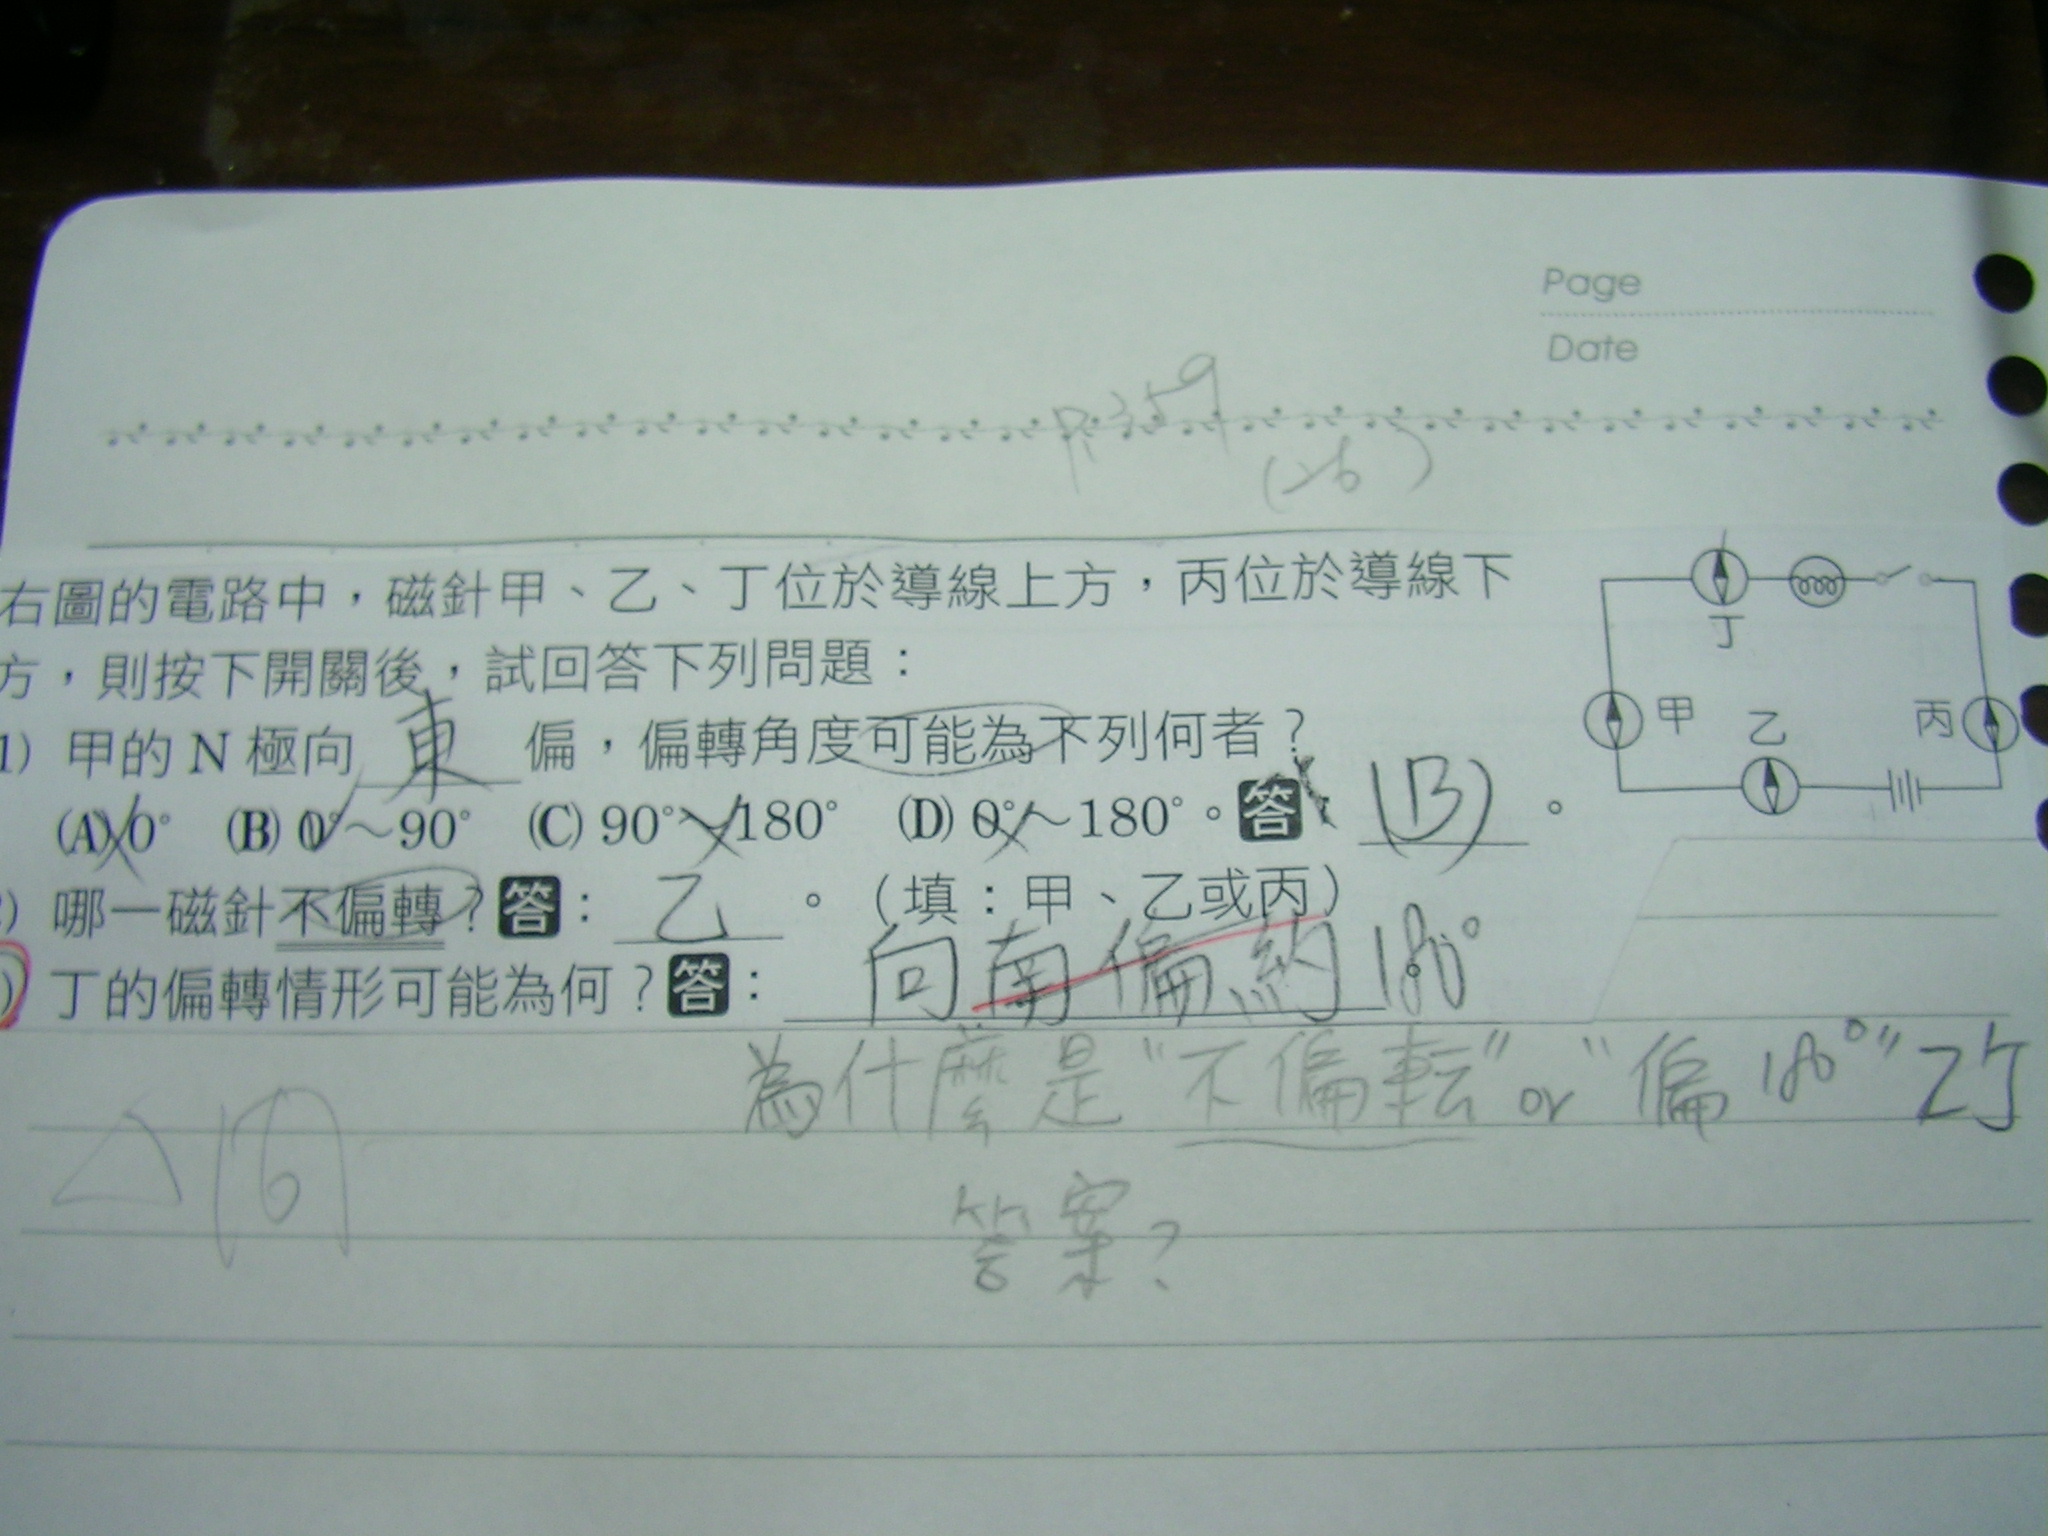 Page
Date
P.359
(26)
右圖的電路中，磁針甲、乙、丁位於導線上方，丙位於導線下
方，則按下開關後，試回答下列問題：
1) 甲的 N 極向 東 偏，偏轉角度可能為下列何者？
(A) 0° (B) 0°～90° (C) 90°～180° (D) 0°～180°。答： (B) 。
) 哪一磁針不偏轉？答： 乙 。（填：甲、乙或丙）
) 丁的偏轉情形可能為何？答： 向南偏約180°
丁
甲
乙
丙
為什麼是"不偏転" or "偏180°"
答案？